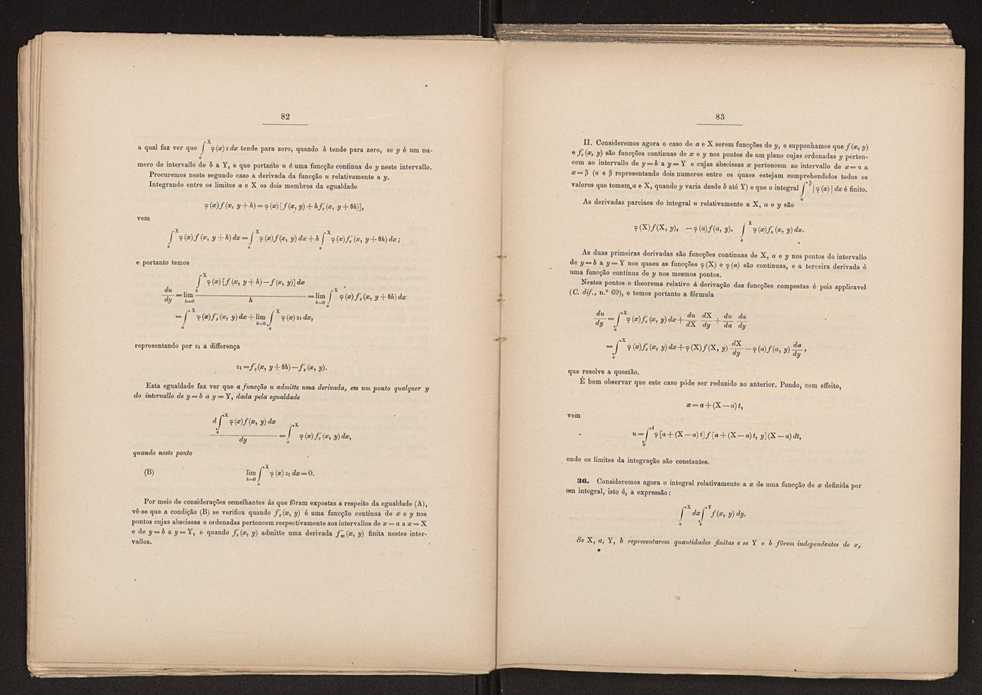 82
a qual faz ver que ∫ₐ^X φ(x) ε dx tende para zero, quando h tende para zero, se y é um nu-
mero do intervallo de b a Y, e que portanto u é uma funcção continua de y neste intervallo.
Procuremos neste segundo caso a derivada da funcção u relativamente a y.
Integrando entre os limites a e X os dois membros da egualdade
φ(x) f(x, y + h) = φ(x) [f(x, y) + hf'ᵧ(x, y + θh)],
vem
∫ₐ^X φ(x) f(x, y + h) dx = ∫ₐ^X φ(x) f(x, y) dx + h ∫ₐ^X φ(x) f'ᵧ(x, y + θh) dx;
e portanto temos
du/dy = lim_{h=0} ∫ₐ^X φ(x) [f(x, y + h) − f(x, y)] dx / h = lim_{h=0} ∫ₐ^X φ(x) f'ᵧ(x, y + θh) dx
= ∫ₐ^X φ(x) f'ᵧ(x, y) dx + lim_{h=0} ∫ₐ^X φ(x) ε₁ dx,
representando por ε₁ a differença
ε₁ = f'ᵧ(x, y + θh) − f'ᵧ(x, y).
Esta egualdade faz ver que a funcção u admitte uma derivada, em um ponto qualquer y
do intervallo de y = b a y = Y, dada pela egualdade
d ∫ₐ^X φ(x) f(x, y) dx / dy = ∫ₐ^X φ(x) f'ᵧ(x, y) dx,
quando neste ponto
(B) lim_{h=0} ∫ₐ^X φ(x) ε₁ dx = 0.
Por meio de considerações semelhantes ás que fôram expostas a respeito da egualdade (A),
vê-se que a condição (B) se verifica quando f'ᵧ(x, y) é uma funcção continua de x e y nos
pontos cujas abscissas e ordenadas pertencem respectivamente aos intervallos de x = a a x = X
e de y = b a y = Y, e quando f'ᵧ(x, y) admitte uma derivada f''ᵧᵧ(x, y) finita nestes inter-
vallos.
83
II. Consideremos agora o caso de a e X serem funcções de y, e supponhamos que f(x, y)
e f'ᵧ(x, y) são funcções continuas de x e y nos pontos de um plano cujas ordenadas y perten-
cem ao intervallo de y = b a y = Y e cujas abscissas x pertencem ao intervallo de x = α a
x = β (α e β representando dois numeros entre os quaes estejam comprehendidos todos os
valores que tomem a e X, quando y varía desde b até Y) e que o integral ∫_α^β |φ(x)| dx é finito.
As derivadas parciaes do integral u relativamente a X, a e y são
φ(X) f(X, y), −φ(a) f(a, y), ∫ₐ^X φ(x) f'ᵧ(x, y) dx.
As duas primeiras derivadas são funcções continuas de X, a e y nos pontos do intervallo
de y = b a y = Y nos quaes as funcções φ(X) e φ(a) são continuas, e a terceira derivada é
uma funcção continua de y nos mesmos pontos.
Nestes pontos o theorema relativo á derivação das funcções compostas é pois applicavel
(C. dif., n.º 69), e temos portanto a fórmula
du/dy = ∫ₐ^X φ(x) f'ᵧ(x, y) dx + du/dX dX/dy + du/da da/dy
= ∫ₐ^X φ(x) f'ᵧ(x, y) dx + φ(X) f(X, y) dX/dy − φ(a) f(a, y) da/dy,
que resolve a questão.
É bom observar que este caso póde ser reduzido ao anterior. Pondo, com effeito,
x = a + (X − a) t,
vem
u = ∫₀^1 φ[a + (X − a) t] f [a + (X − a) t, y] (X − a) dt,
onde os limites da integração são constantes.
36. Consideremos agora o integral relativamente a x de uma funcção de x definida por
um integral, isto é, a expressão:
∫ₐ^X dx ∫_b^Y f(x, y) dy.
Se X, a, Y, b representarem quantidades finitas e se Y e b fôrem independentes de x,